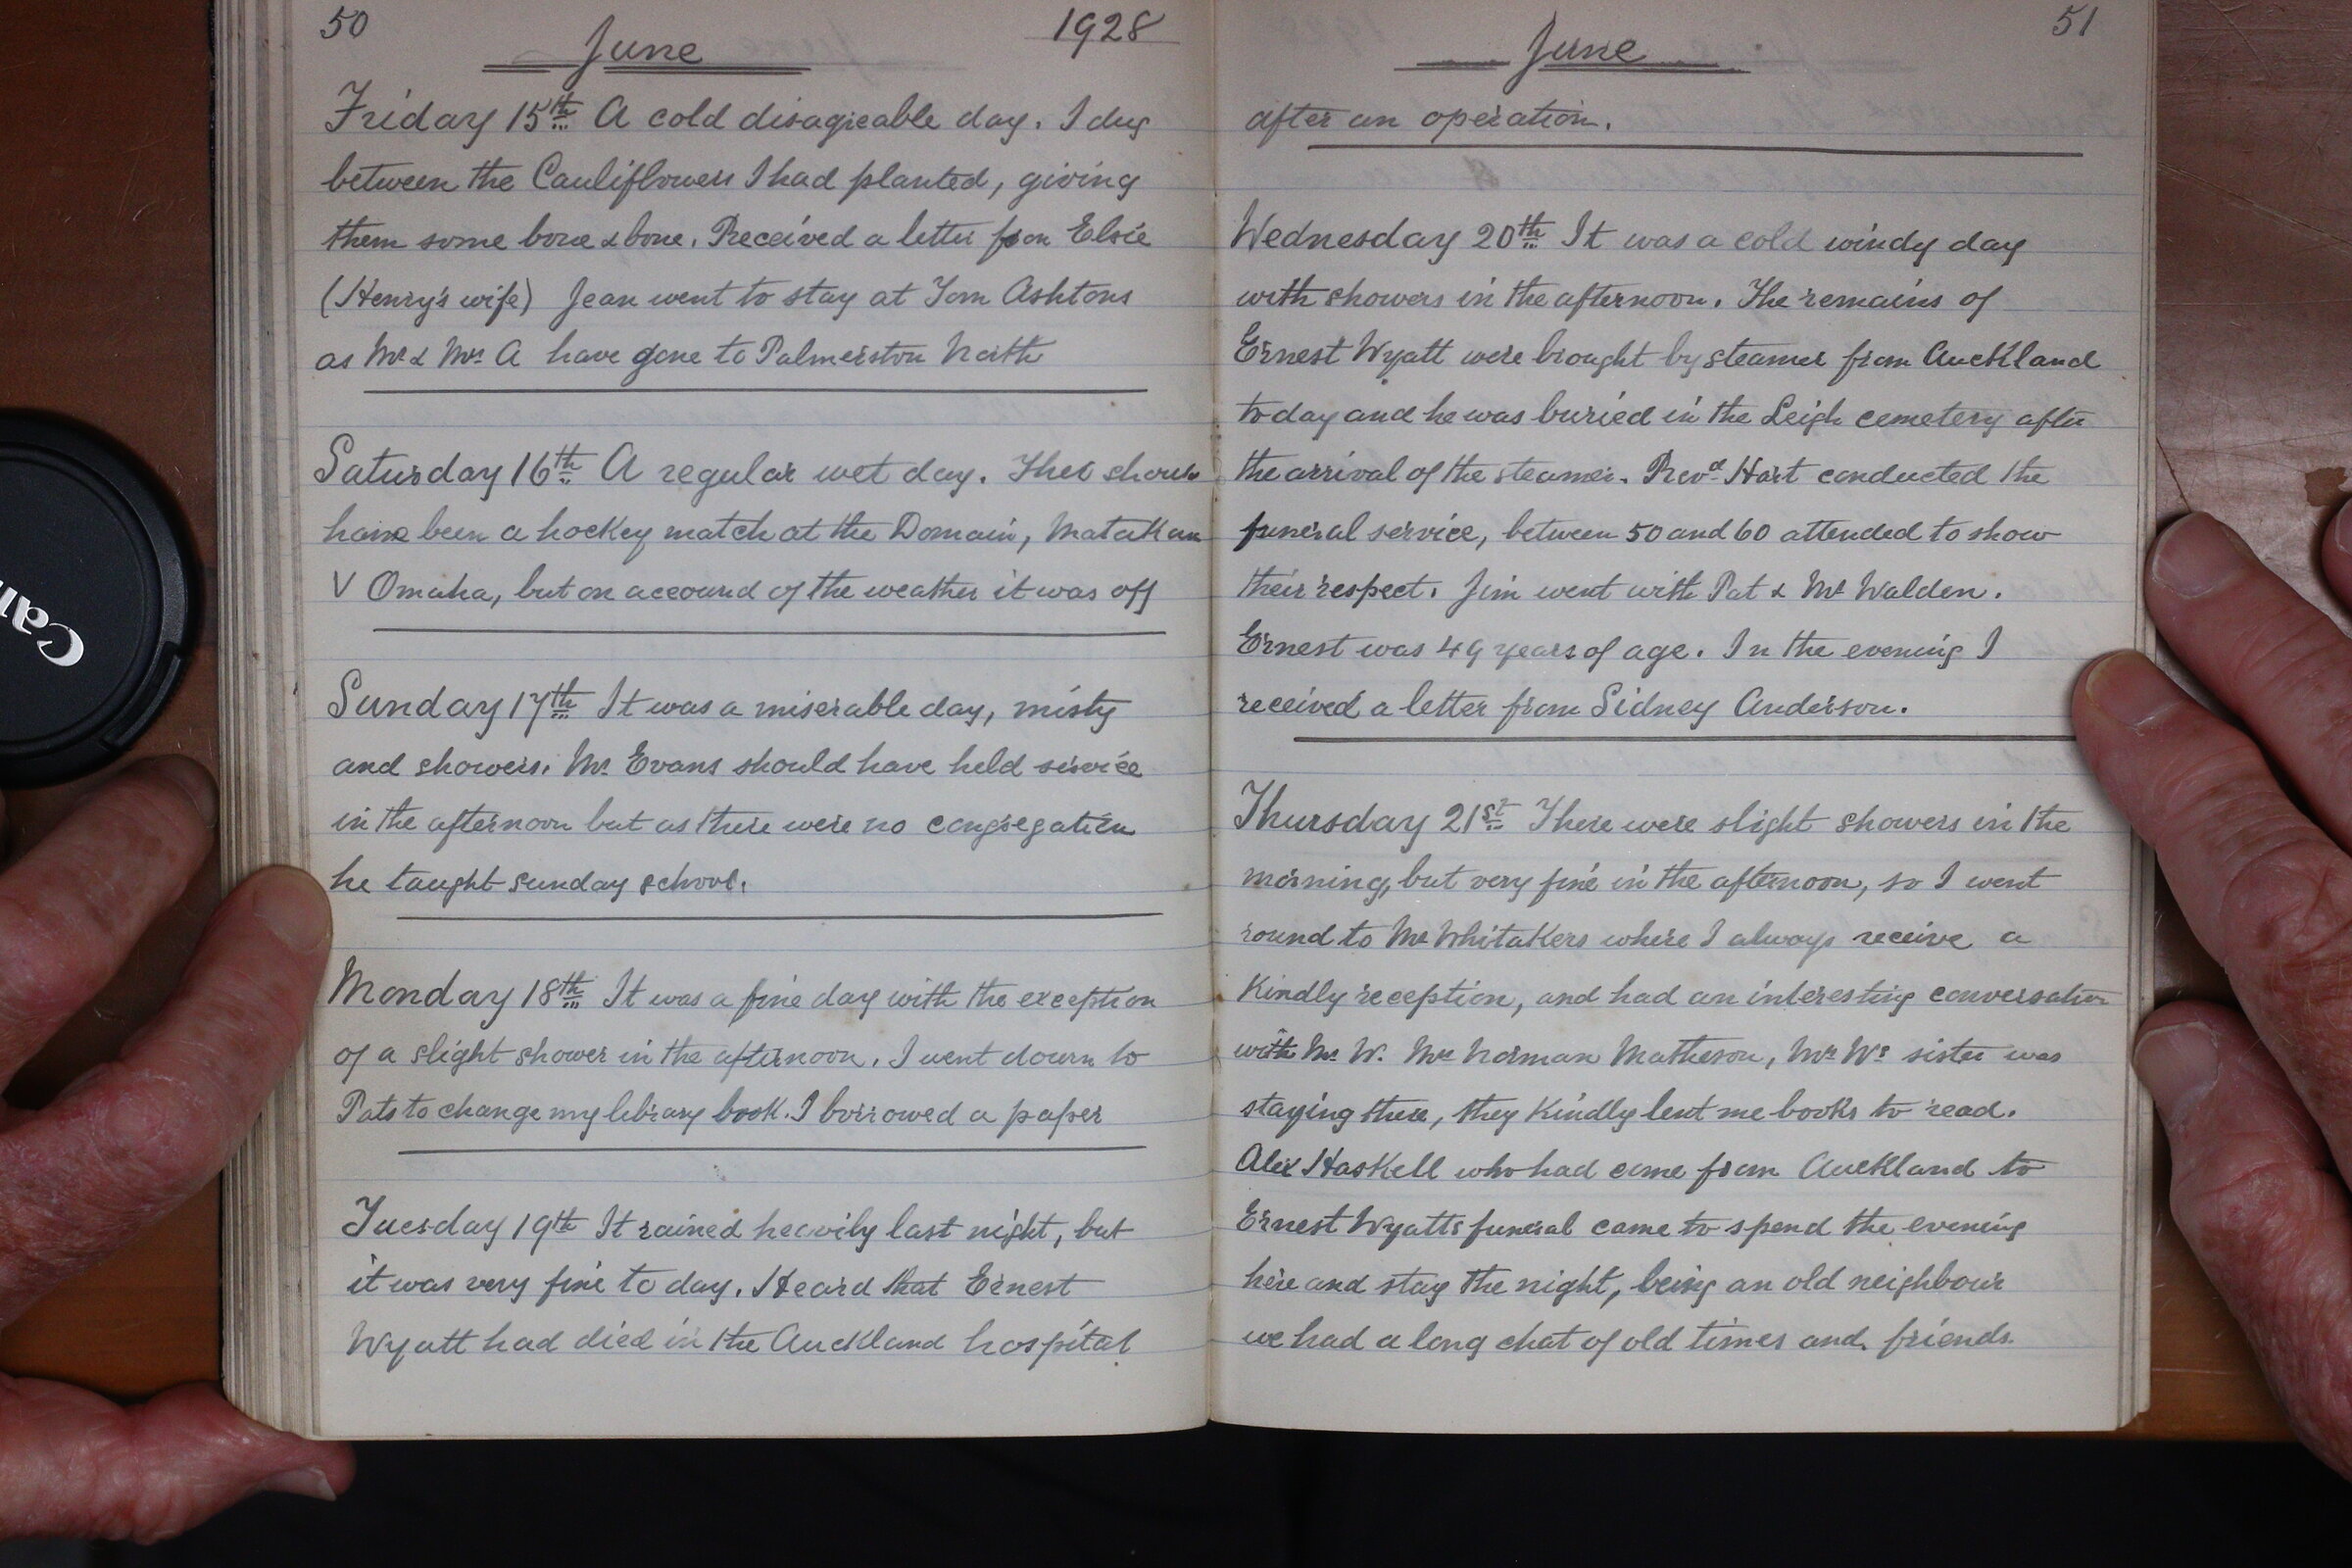 50
1928
June
Friday 15th A cold disagreable day. I dug
between the Cauliflowers I had planted, giving
them some bone & bone. Received a letter from Elsie
(Henry's wife) Jean went to stay at Tom Ashtons
as Mr & Mrs A have gone to Palmerston North
Saturday 16th A regular wet day. Ther should
have been a hockey match at the Domain, Matakan
V Omaha, but on accound of the weather it was off
Sunday 17th It was a miserable day, misty
and showers. Mr Evans should have held service
in the afternoon but as there were no congregation
he taught sunday school.
Monday 18th It was a fine day with the exception
of a slight shower in the afternoon. I went down to
Pats to change my library book. I borrowed a paper
Tuesday 19th It rained heavily last night, but
it was very fine to day. Heard that Ernest
Wyatt had died in the Auckland hospital
51
June
after an operation.
Wednesday 20th It was a cold windy day
with showers in the afternoon. The remains of
Ernest Wyatt were brought by steamer from Auckland
today and he was buried in the Leigh cemetery after
the arrival of the steamer. Revd Hart conducted the
funeral service, between 50 and 60 attended to show
their respect. Jim went with Pat & Mr Walden.
Ernest was 49 years of age. In the evening I
received a letter from Sidney Anderson.
Thursday 21st There were slight showers in the
morning, but very fine in the afternoon, so I went
round to Mr Whitakers where I always receive a
Kindly reception, and had an interesting conversation
with Mr W. Mrs Norman Matheson, Mr Ws sister was
staying there, they Kindly lent me books to read.
Alex Haskell who had come from Auckland to
Ernest Wyatts funeral came to spend the evening
here and stay the night, being an old neighbour
we had a long chat of old times and friends.
Can